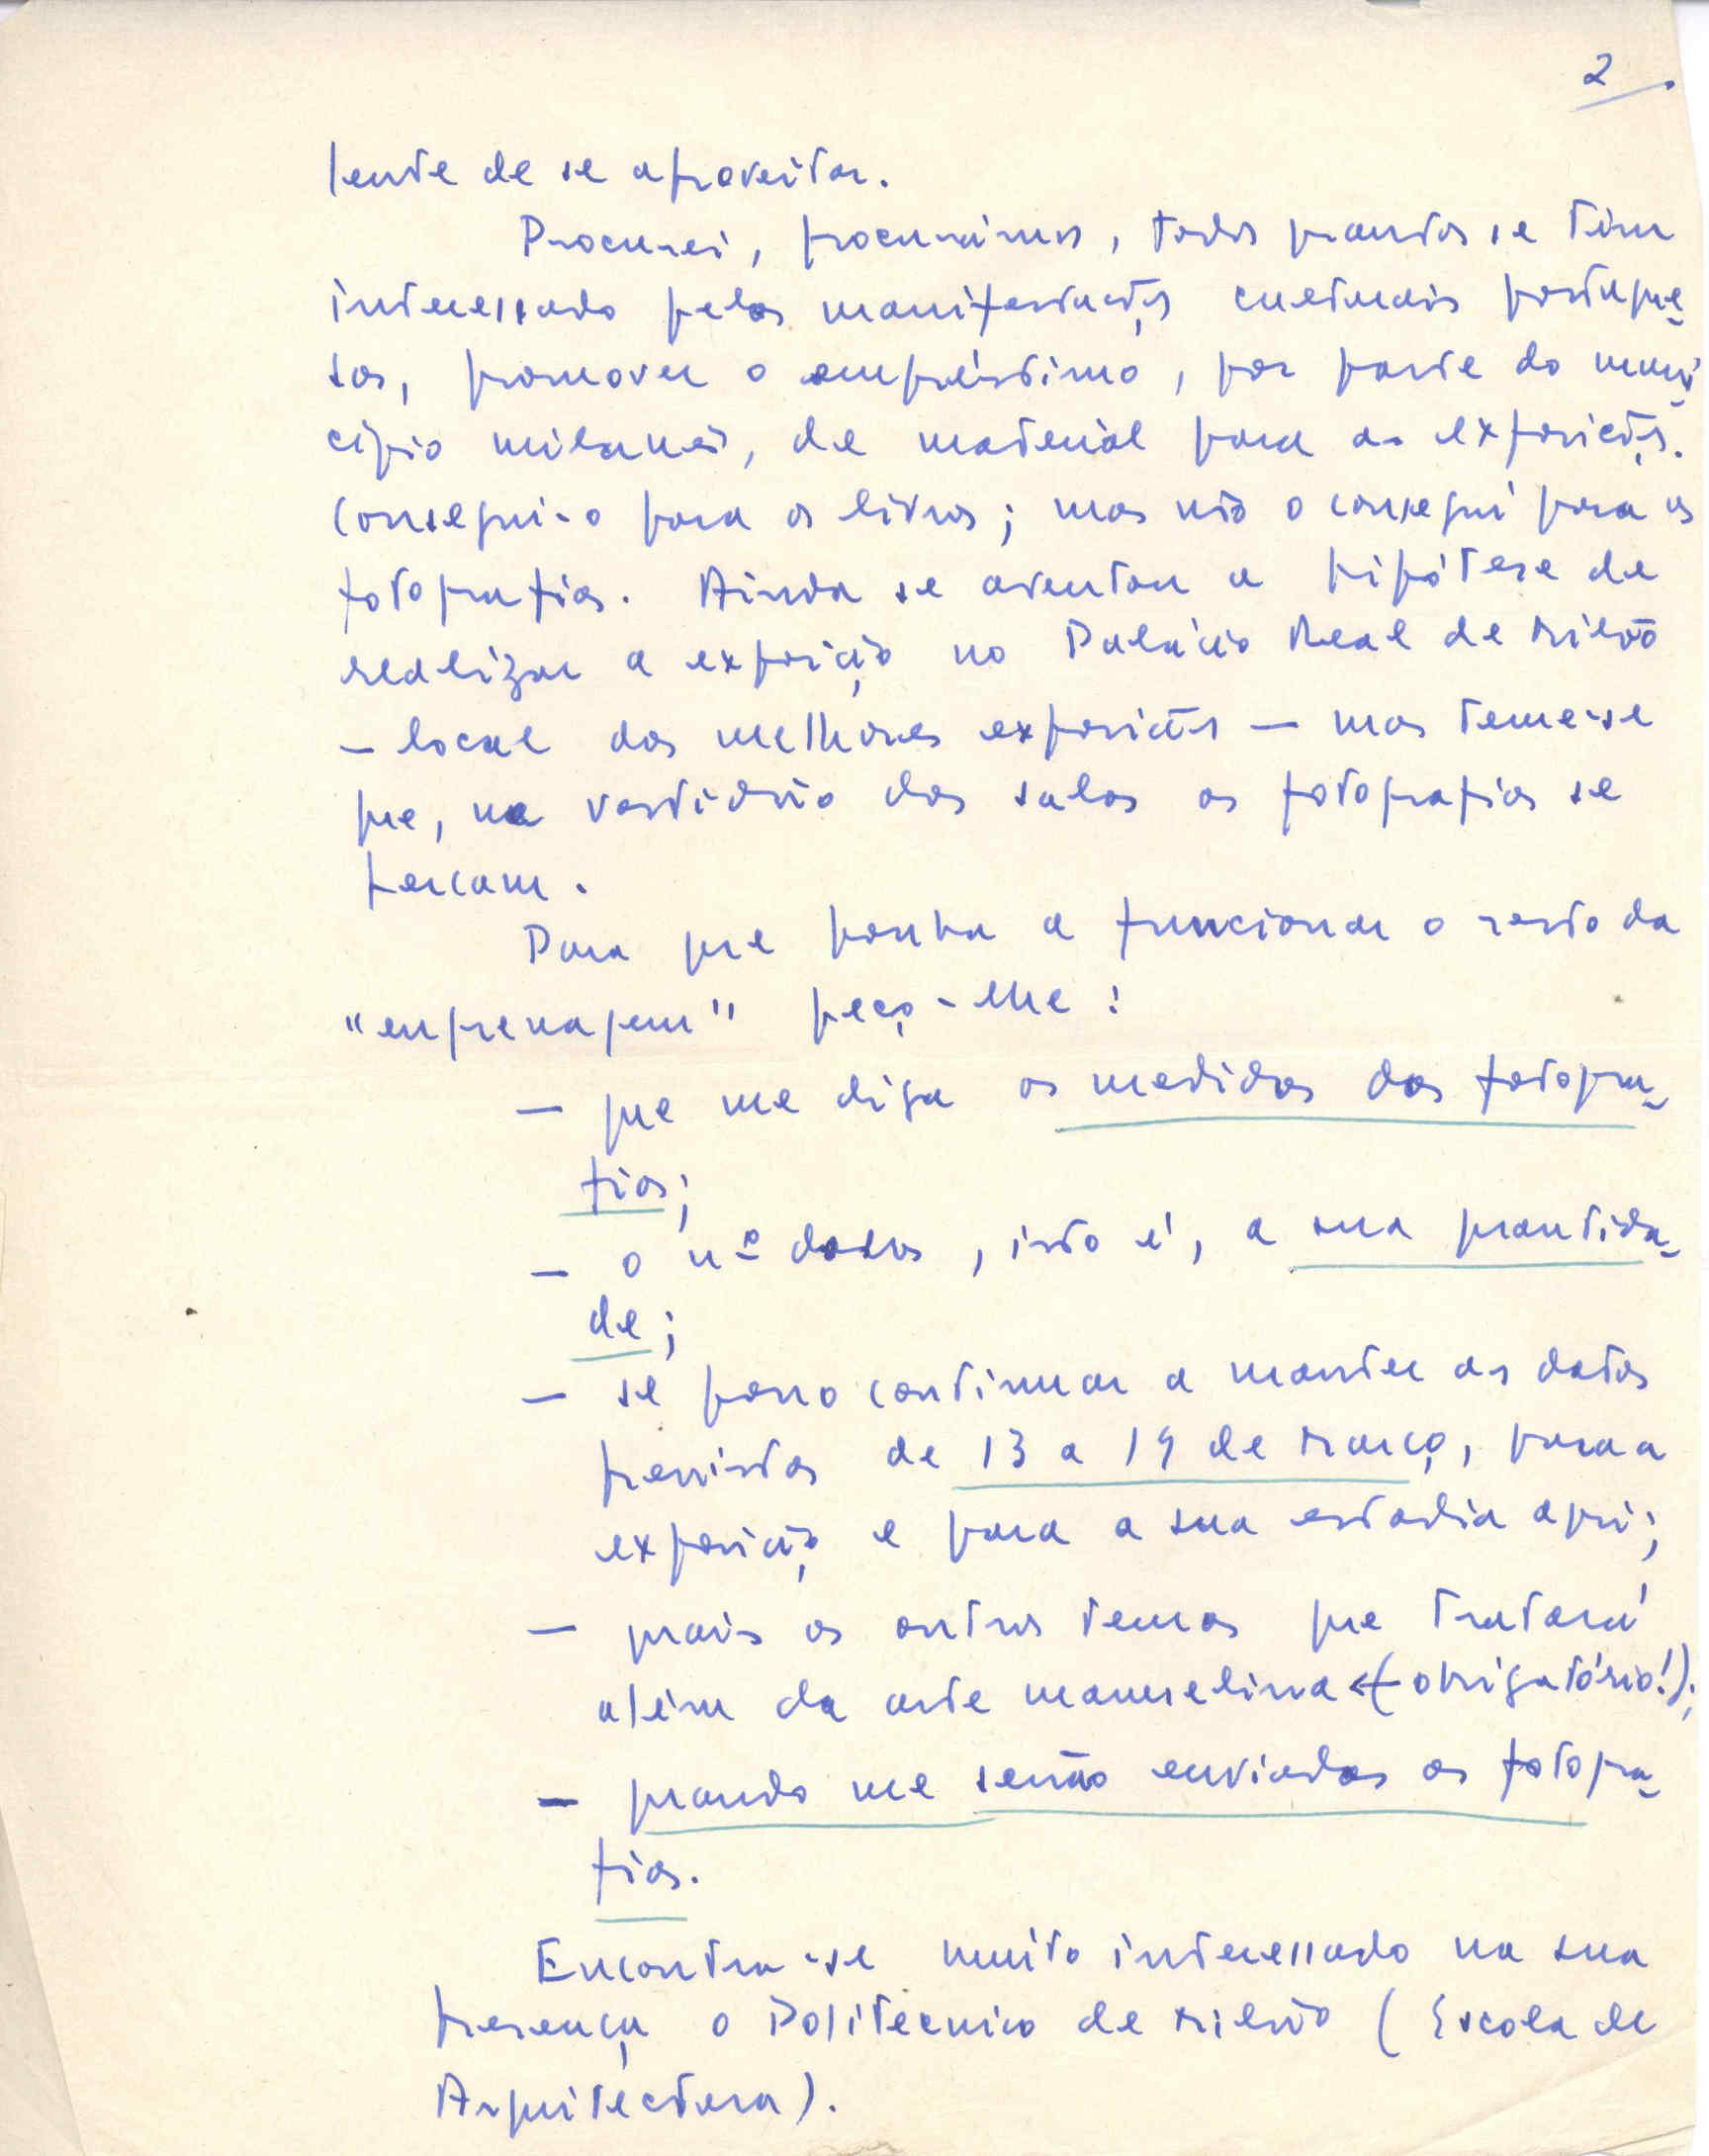 2
lente de se aproveitar.
Procurei, procurámos, todos quantos se têm
interessado pelas manifestações culturais portugue-
sas, promover o empréstimo, por parte do muni-
cípio milanês, de material para as exposições.
Consegui-o para os livros; mas não o consegui para as
fotografias. Ainda se aventou a hipótese de
realizar a exposição no Palácio Real de Milão
— local das melhores exposições — mas teme-se
que, na vastidão das salas as fotografias se
percam.
Para que ponha a funcionar o resto da
"engrenagem" peço-lhe:
— que me diga as medidas das fotogra-
fias;
— o nº delas, isto é, a sua quantida-
de;
— se posso continuar a manter as datas
previstas de 13 a 19 de Março, para a
exposição e para a sua estadia aqui;
— quais os outros temas que tratará
além da arte manuelina (obrigatório!);
— quando me serão enviadas as fotogra-
fias.
Encontra-se muito interessado na sua
presença o Politecnico de Milão (Escola de
Arquitectura).